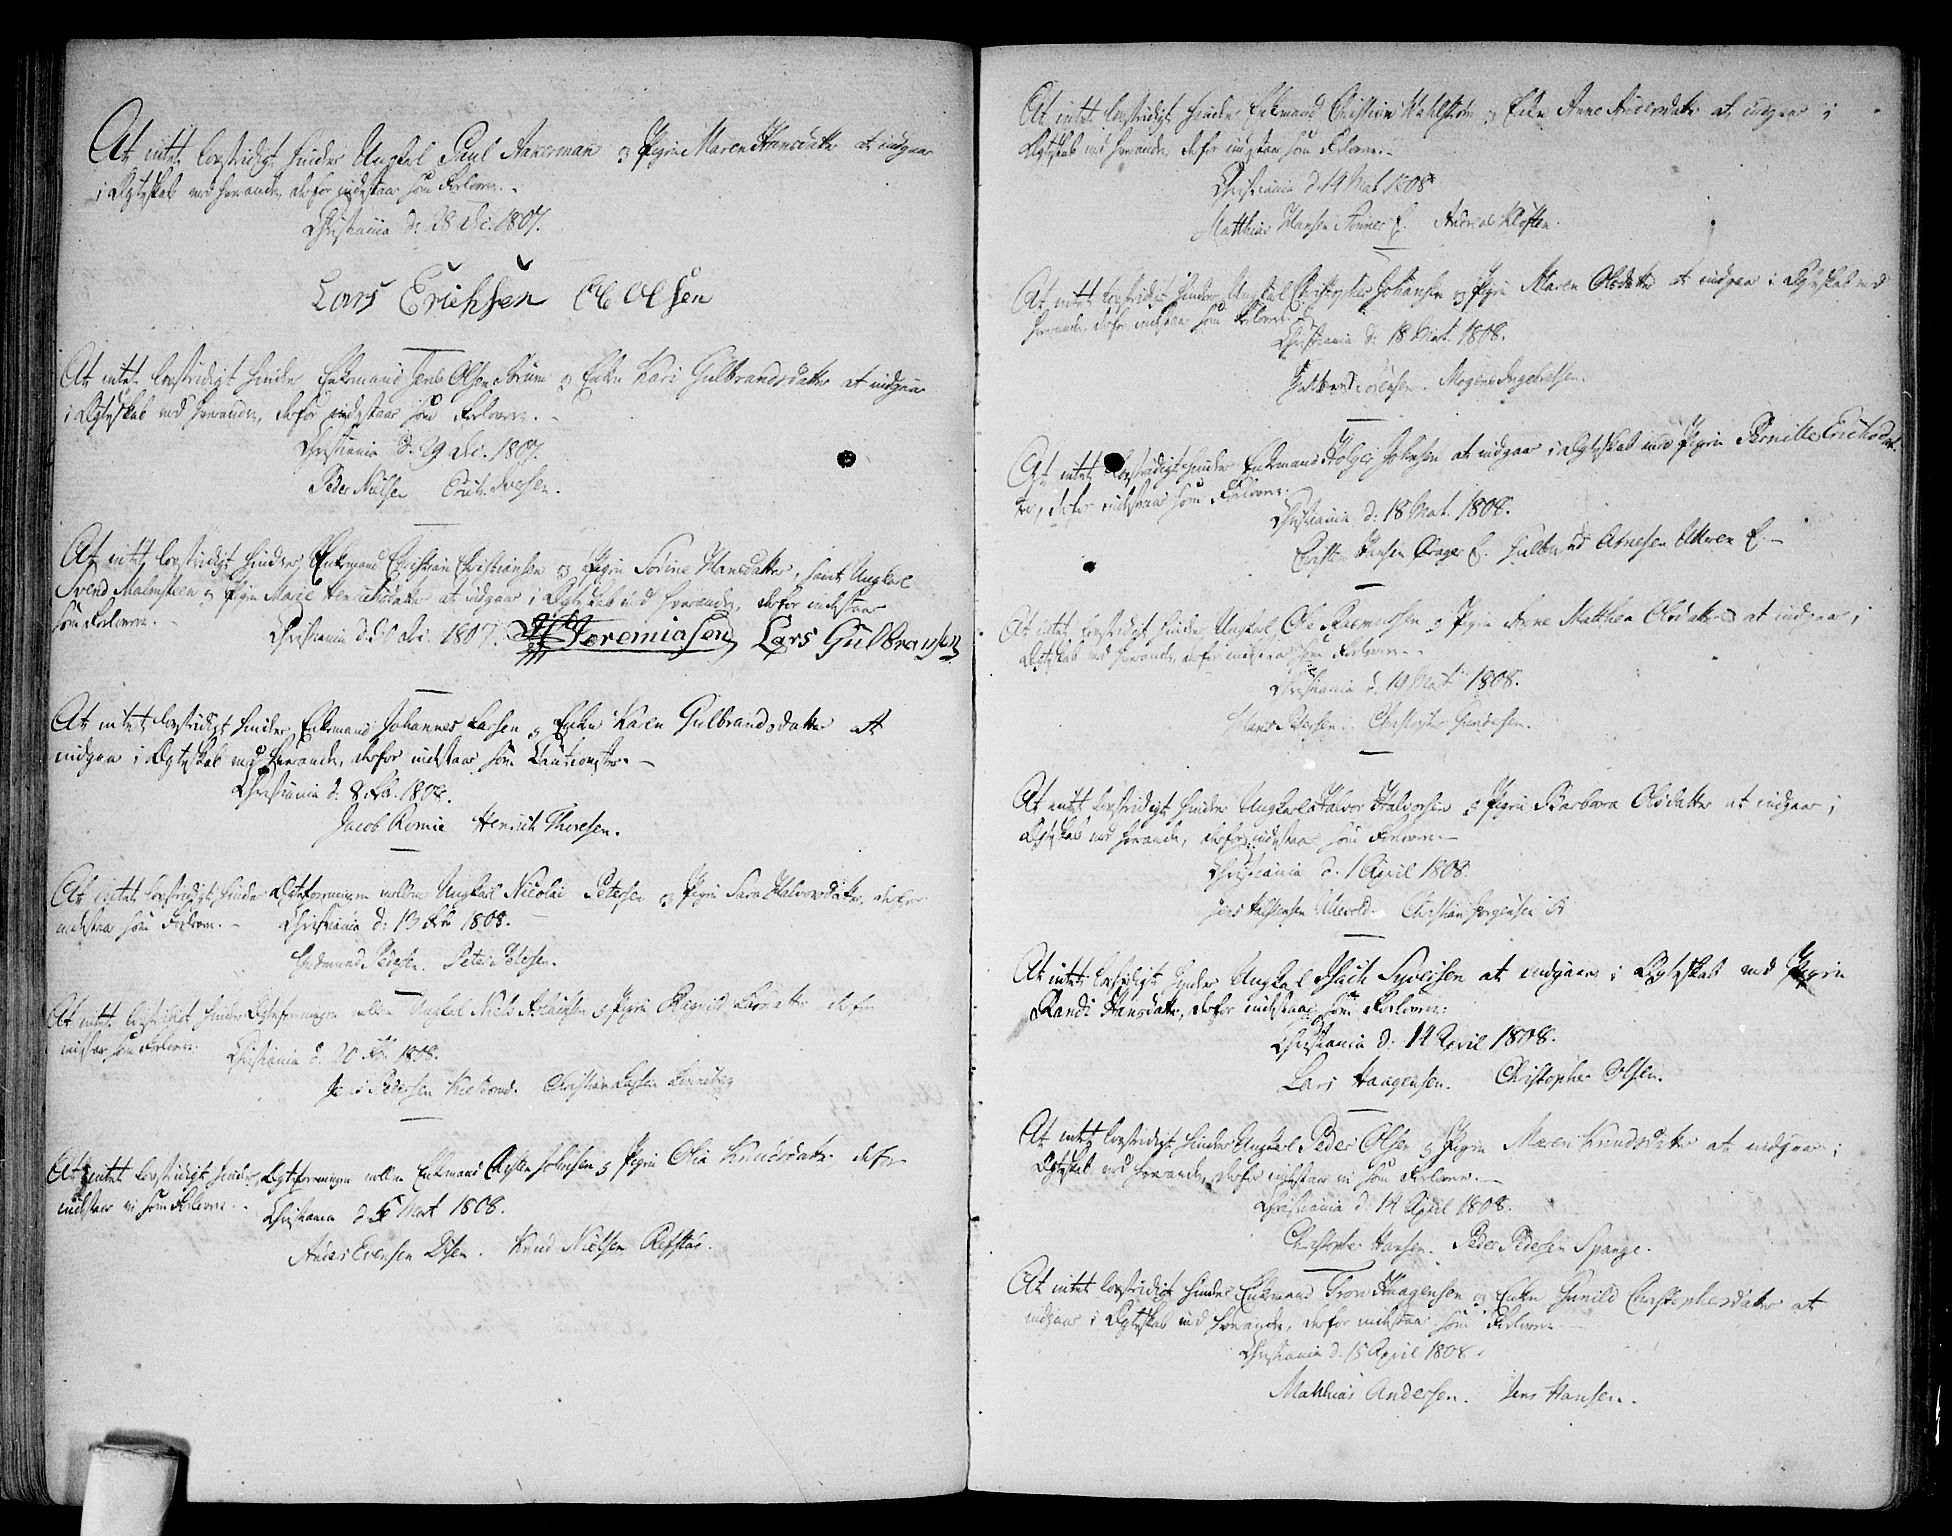 At intet lovstridigt hindrer Ungkal Paul Ankerman og Pigen Maren Hansdatter at indgaae
i Ægteskab med hverandre, derfor indestaar som Forlovere.
Christiania d: 28 Dec. 1807.
Lars Erichsen Ole Olsen
At intet lovstridigt hindrer Enkemand Jens Olsen og Enken Kari Gulbrandsdatter at indgaae
i Ægteskab med hverandre, derfor indestaar som Forlovere.
Christiania d. 29 Dec. 1807.
Peder Nielsen Erich Iversen.
At intet lovstridigt hindrer Enkemand Christian Christiansen og Pigen Sörine Hansdatter, samt Ungkarl
Svend Malmsteen og Pigen Marie Henrichsdatter at indgaae i Ægteskab med hverandre, derfor indestaar
som Forlovere.
Christiania d. 30 Dec. 1807. Jeremiasen Lars Gulbransen
At intet lovstridigt hindrer Enkemand Johannes Larsen og Enken Karen Gulbrandsdatter at
indgaa i Ægteskab med hverandre, derfor indestaar som Cautionister.
Christiania d. 8 Feb. 1808.
Jacob Romie Henrich Thoresen.
At intet lovstridigt hindrer Ægteforeningen mellem Ungkarl Nicolai Petersen og Pigen Sara Halvorsdatter, derfor
indestaar som Forlovere.
Christiania d: 13 Feb 1808.
Gudmund Pedersen. Peter Petersen.
At intet lovstridigt hindrer Ægteforeningen mellem Ungkal Niels Aslachsen og Pigen Ragnild derfor
indestaar som Forlovere.
Christiania d. 20 Feb. 1808.
Jens Pedersen Christian Larsen
At intet lovstridigt hindrer Ægteforeningen mellem Enkemand Christen Johnsen og Pigen Olia Knudsdatter derfor
indestaar vi som Forlovere.
Christiania d. 5 Mart 1808.
Anders Evensen Disen. Knud Nielsen Refstad.
At intet lovstridigt hindrer Enkemand Christian Wahlström og Enken Anne Andersdatter at indgaae i
Ægteskab med hverandre, derfor indestaar som Forlovere.
Christiania d. 14 Mart 1808
Matthias Hansen Andreas Klofsten.
At intet lovstridigt hindrer Ungkal Christopher Johansen og Pigen Maren Olsdatter at indgaae i Ægteskab med
hverandre, derfor indestaar som Forlovere.
Christiania d: 18 Mart. 1808.
Mogens Ingebretsen.
At intet lovstridigt hindrer Enkemand Holgej Johnsen at indgaae i Ægteskab med Pigen Pernille Erichsdat-
ter, derfor indestaar som Forlovere.
Christiania d: 18 Mart. 1808.
Christen Hansen Gulbrand Arnesen
At intet lovstridigt hindrer Ungkal Ole Rasmussen og Pigen Anne Matthea Olsdatter at indgaae i
Ægteskab med hverandre, derfor indestaar som Forlovere.
Christiania d. 19 Mart 1808.
Hans Petersen. Christopher Gundersen.
At intet lovstridigt hindrer Ungkarl Halvor Halvorsen og Pigen Barbara Olsdatter at indgaae i
Ægteskab med hverandre, derfor indestaar som Forlovere.
Christiania d. 1 April 1808.
Jens Halstensen Ullevold. Christian Jörgensen
At intet lovstridigt hindrer Ungkarl Isach Syversen at indgaae i Ægteskab med Pigen
Randi Hansdatter, derfor indestaar som Forlovere.
Christiania d: 14 April 1808.
Lars Haagensen. Christopher Olsen.
At intet lovstridigt hindrer Ungkarl Peder Olsen og Pigen Maren Knudsdatter at indgaae i
Ægteskab med hverandre, derfor indestaar vi som Forlovere.
Christiania d: 14 April 1808.
Christopher Hansen. Peder Pedersen Spange.
At intet lovstridigt hindrer Enkemand Tron Haagensen og Enken Gunild Christophersdatter at
indgaae i Ægteskab med hverandre, derfor indestaar som Forlovere.
Christiania d. 15 April 1808.
Mathias Andersen. Jens Hansen.